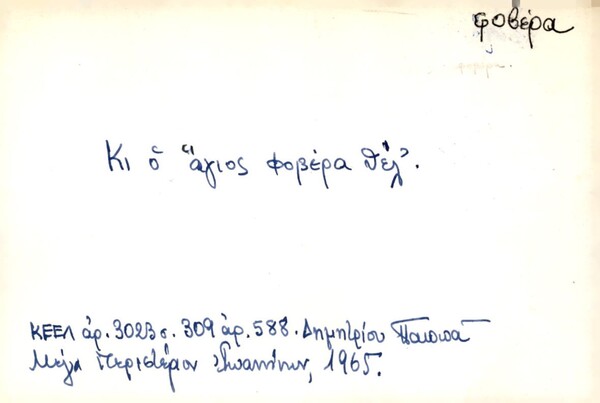 φοβέρα
Κι ὁ ἅγιος φοβέρα θέλ'.
ΚΕΕΛ ἀρ. 3023 σ. 309 ἀρ. 588. Δημητρίου
Μέγα Περιστέριον Ἰωαννίνων, 1965.